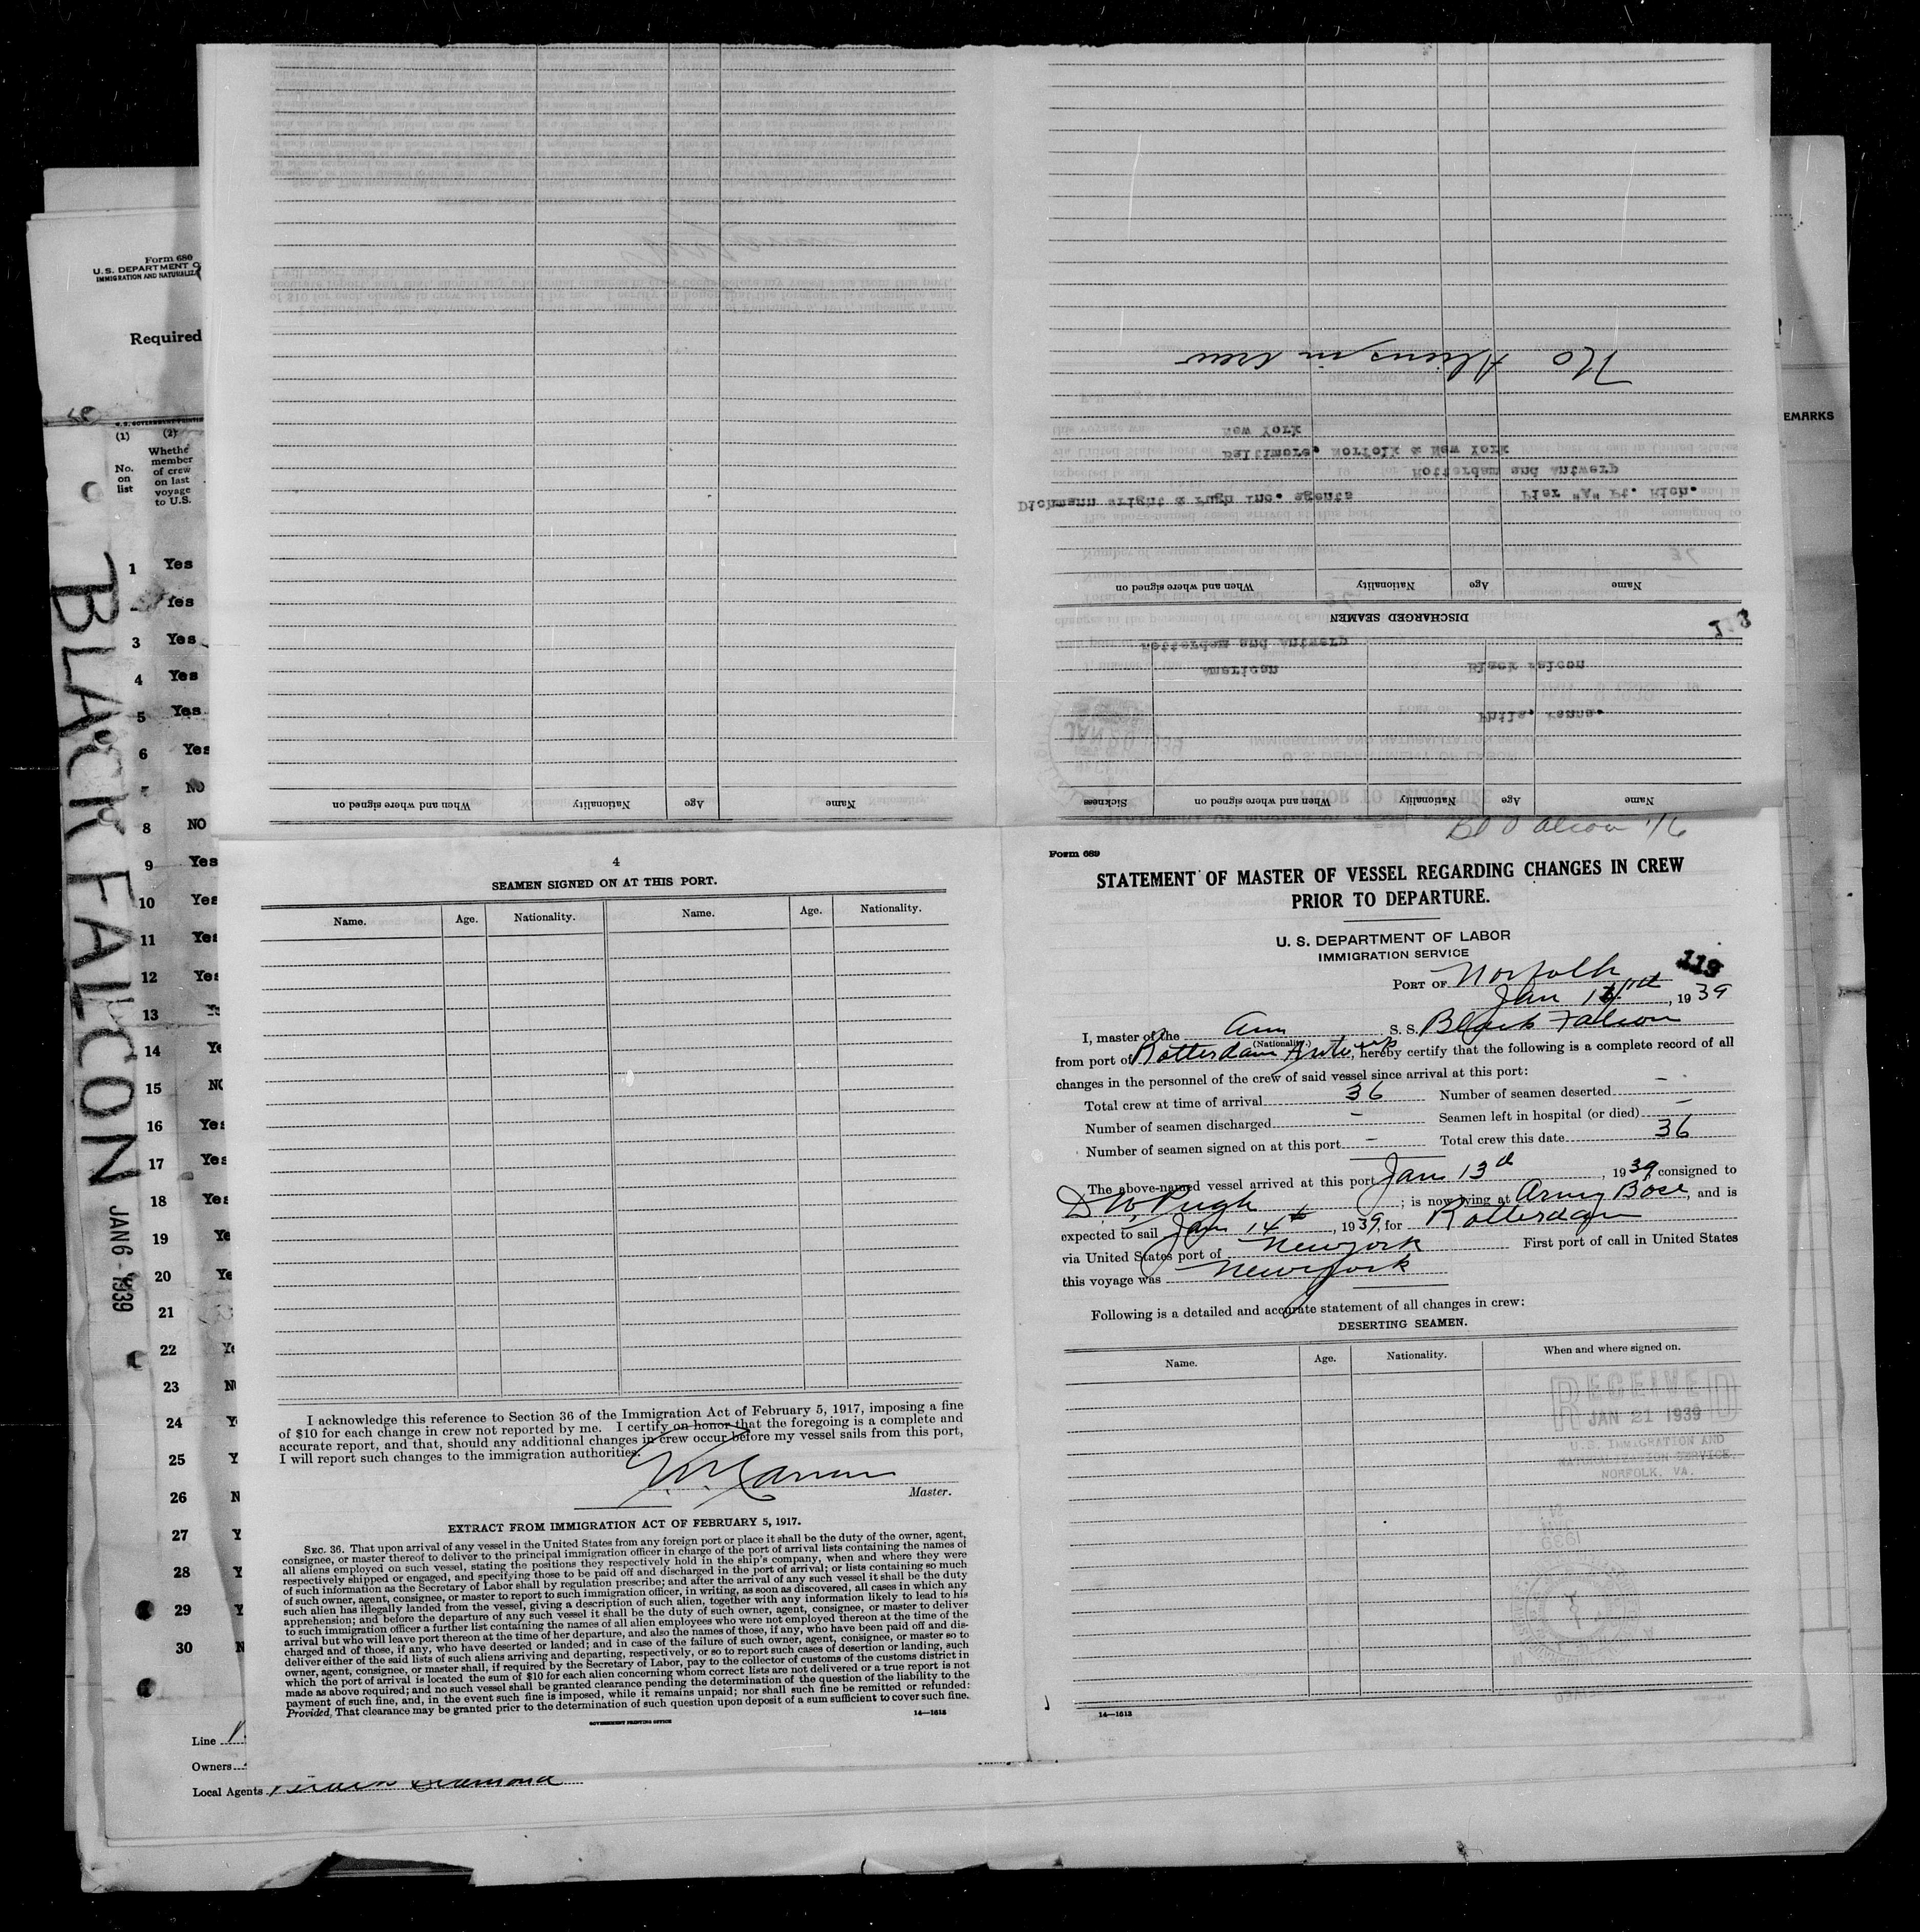 Form 680
U.S. DEPARTMENT O
IMMIGRATION AND NATURALIZ
Required
(1) (2)
No. on list
Whethe
member
of crew
on last
voyage
to U.S.
1 Yes
Yes
3 Yes
4 Yes
5 Yes
6 Yes
NO
8 NO
9 Yes
10 Yes
11 Yes
12 Yes
13
14 Ye
15 NO
16 Yes
17 Yes
18 Yes
19 Ye
20 Ye
21
22 Ye
23 N
24 Y
25 Y
26 N
27 Y
28 Y
29 Y
30 N
BLACK FALCON JAN 6 - 1939
Line
Owners
Local Agents
EMARKS
No Aliens in crew
New York
Baltimore, Norfolk & New York
Rotterdam and Antwerp
Dichmann Wright & Pugh Inc. agents
Pier "A" Pt. Rich.
Name Age Nationality When and where signed on
DISCHARGED SEAMEN
118
Rotterdam and Antwerp
American Black Falcon
Phila. Penna.
Name Age Nationality When and where signed on Sickness
Name Age Nationality When and where signed on
4
SEAMEN SIGNED ON AT THIS PORT.
Name. Age. Nationality. Name. Age. Nationality.
I acknowledge this reference to Section 36 of the Immigration Act of February 5, 1917, imposing a fine
of $10 for each change in crew not reported by me. I certify on honor that the foregoing is a complete and
accurate report, and that, should any additional changes in crew occur before my vessel sails from this port,
I will report such changes to the immigration authorities.
Master.
EXTRACT FROM IMMIGRATION ACT OF FEBRUARY 5, 1917.
SEC. 36. That upon arrival of any vessel in the United States from any foreign port or place it shall be the duty of the owner, agent,
consignee, or master thereof to deliver to the principal immigration officer in charge of the port of arrival lists containing the names of
all aliens employed on such vessel, stating the positions they respectively hold in the ship's company, when and where they were
respectively shipped or engaged, and specifying those to be paid off and discharged in the port of arrival; or lists containing so much
of such information as the Secretary of Labor shall by regulation prescribe; and after the arrival of any such vessel it shall be the duty
of such owner, agent, consignee, or master to report to such immigration officer, in writing, as soon as discovered, all cases in which any
such alien has illegally landed from the vessel, giving a description of such alien, together with any information likely to lead to his
apprehension; and before the departure of any such vessel it shall be the duty of such owner, agent, consignee, or master to deliver
to such immigration officer a further list containing the names of all alien employees who were not employed thereon at the time of the
arrival but who will leave port thereon at the time of her departure, and also the names of those, if any, who have been paid off and dis-
charged and of those, if any, who have deserted or landed; and in case of the failure of such owner, agent, consignee, or master so to
deliver either of the said lists of such aliens arriving and departing, respectively, or so to report such cases of desertion or landing, such
owner, agent, consignee, or master shall, if required by the Secretary of Labor, pay to the collector of customs of the customs district in
which the port of arrival is located the sum of $10 for each alien concerning whom correct lists are not delivered or a true report is not
made as above required; and no such vessel shall be granted clearance pending the determination of the question of the liability to the
payment of such fine, and, in the event such fine is imposed, while it remains unpaid; nor shall such fine be remitted or refunded:
Provided, That clearance may be granted prior to the determination of such question upon deposit of a sum sufficient to cover such fine.
GOVERNMENT PRINTING OFFICE 14—1613
Form 689
STATEMENT OF MASTER OF VESSEL REGARDING CHANGES IN CREW
PRIOR TO DEPARTURE.
U. S. DEPARTMENT OF LABOR
IMMIGRATION SERVICE
119
PORT OF Norfolk
Jan , 1939
I, master of the Am S. S. Black Falcon
(Nationality.)
from port of Rotterdam Antwerp, hereby certify that the following is a complete record of all
changes in the personnel of the crew of said vessel since arrival at this port:
Total crew at time of arrival 36 Number of seamen deserted –
Number of seamen discharged – Seamen left in hospital (or died) –
Number of seamen signed on at this port – Total crew this date 36
The above-named vessel arrived at this port Jan 13th, 1939, consigned to
D. W. Pugh; is now lying at Army Base, and is
expected to sail Jan 14th, 1939, for Rotterdam
via United States port of New York First port of call in United States
this voyage was New York
Following is a detailed and accurate statement of all changes in crew:
DESERTING SEAMEN.
Name. Age. Nationality. When and where signed on.
RECEIVED
JAN 21 1939
U.S. IMMIGRATION AND
NATURALIZATION SERVICE
NORFOLK, VA.
14—1613